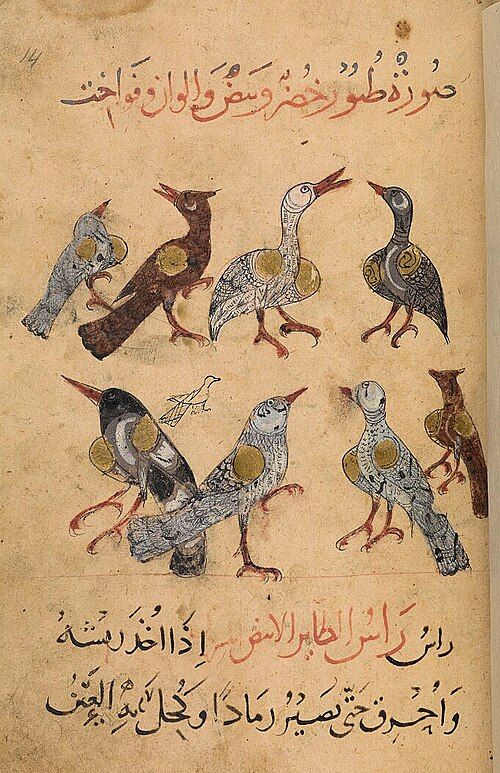 14
صورة طيور خضر وبيض والوان وفواخت
راس راس الطاير الابيض اذا اخذ ريشه
واحرق حتى يصير رمادا وكحل به العين